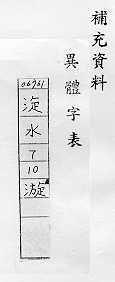 補充資料
異體字表
06961
淀
水
7
10
漩